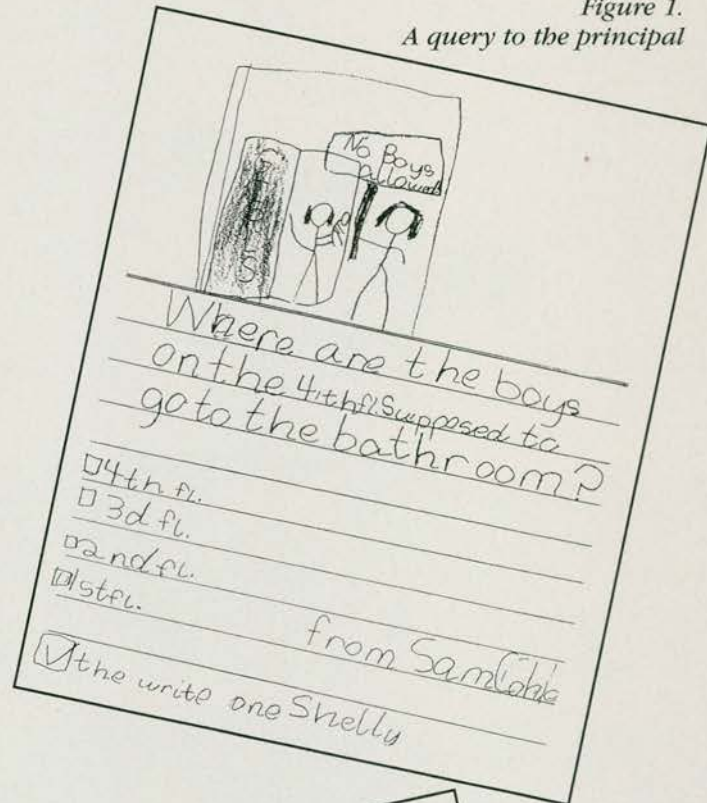 Figure 1.
A query to the principal
No Boys
allowed
Where are the boys
on the 4th fl. Supposed to
go to the bathroom?
4th fl.
3d fl.
2nd fl.
1st fl.
from Sam
the write one Shelly